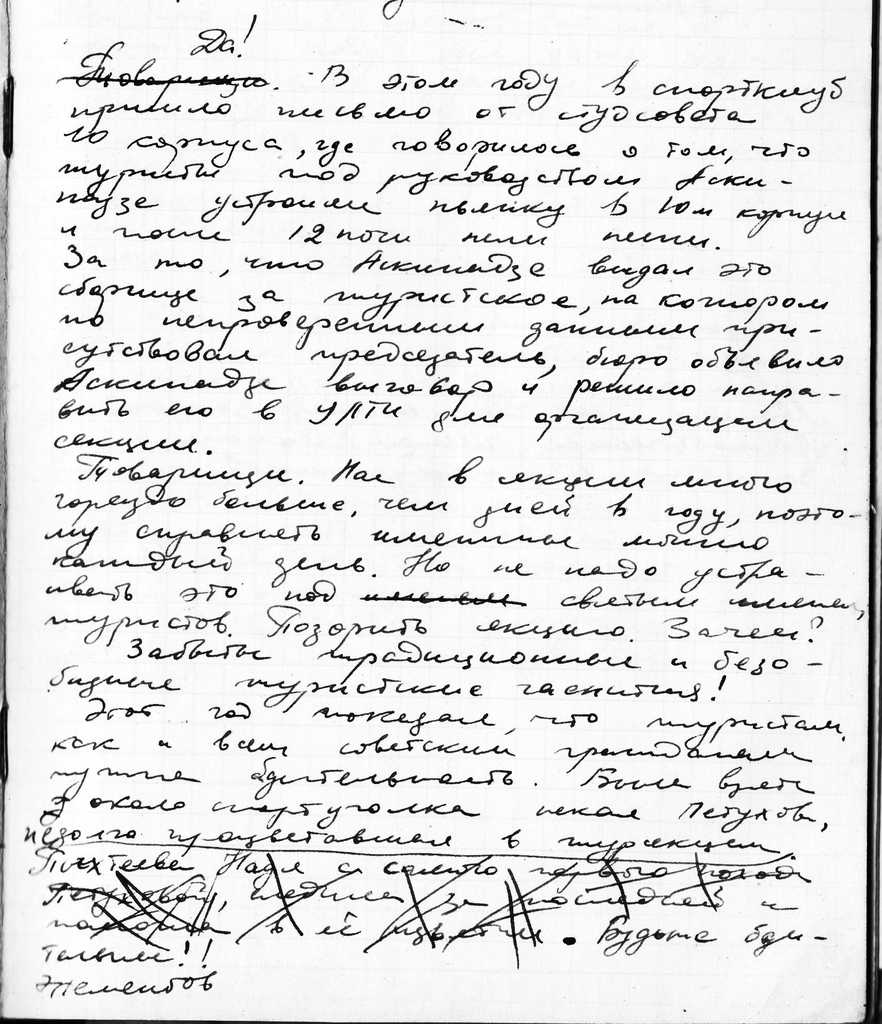 Да!
Товарищи. В этом году в спортклуб
пришло письмо от студсовета
10 корпуса, где говорилось о том, что
туристы под руководством Аски-
надзе устроили пьянку в 10м корпусе
и после 12 ночи пели песни.
За то, что Аскинадзе выдал это
сборище за туристское, на котором
по непроверенным данным при-
сутствовал председатель, бюро объявило
Аскинадзе выговор и решило напра-
вить его в УЛТИ для организации
секции.
Товарищи. Нас в секции много
гораздо больше, чем дней в году, поэто-
му справлять именины можно
каждый день. Но не надо устра-
ивать это под именем святым именем
туристов. Позорить секцию. Зачем?
Забыты традиционные и безо-
бидные туристские чаепития!
Этот год показал, что туристам,
как и всем советским гражданам
нужна бдительность. Была взята
около спортуголка некая Петухова,
недолго процветавшая в турсекции.
Пыхтеева Надя с самого первого похода
Петуховой, следила за последней и
в её Будьте бди-
тельны!!